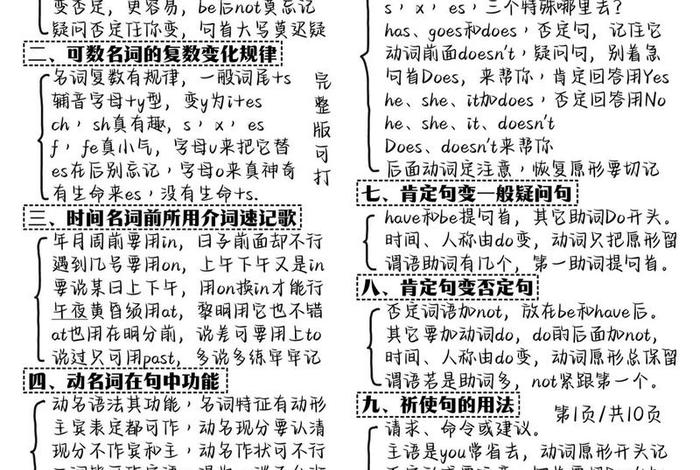 变否定，更容易，be后not莫忘记
疑问否定任你变，句首大写莫迟疑
二、可数名词的复数变化规律
名词复数有规律，一般词尾+s
辅音字母+y型，变y为i+es
ch，sh真有趣，s，x，es
f，fe真小气，字母v来把它替
es在后别忘记，字母o来真神奇
有生命来es，没有生命+s.
完整版可打
三、时间名词前所用介词速记歌
年月周前要用in，日子前面却不行
遇到几号要用on，上午下午又是in
要说某日上下午，用on换in才能行
午夜黄昏须用at，黎明用它也不错
at也用在明分前，说差可要用上to
说过只可用past，多说多练牢牢记
四、动名词在句中功能
动名语法其功能，名词特征有动形
主宾表定都可作，动名现分要认清
现分不作宾和主，动名作状可不行
s，x，es，三个特殊哪里去？
has、goes和does，否定句，记住它
动词前面doesn't，疑问句，别着急
句首Does，来帮你，肯定回答用Yes
he、she、it加does，否定回答用No
he、she、it、doesn't
Does、doesn't来帮你
后面动词定注意，恢复原形要切记
七、肯定句变一般疑问句
have和be提句首，其它助词Do开头。
时间、人称由do变，动词只把原形留
谓语助词有几个，第一助词提句首。
八、肯定句变否定句
否定词语加not，放在be和have后。
其它要加动词do，do的后面加not，
时间、人称由do变，动词原形总保留
谓语若是助词多，not紧跟第一个。
九、祈使句的用法
第1页/共10页
请求、命令或建议。
主语是you常省去，动词原形开头记